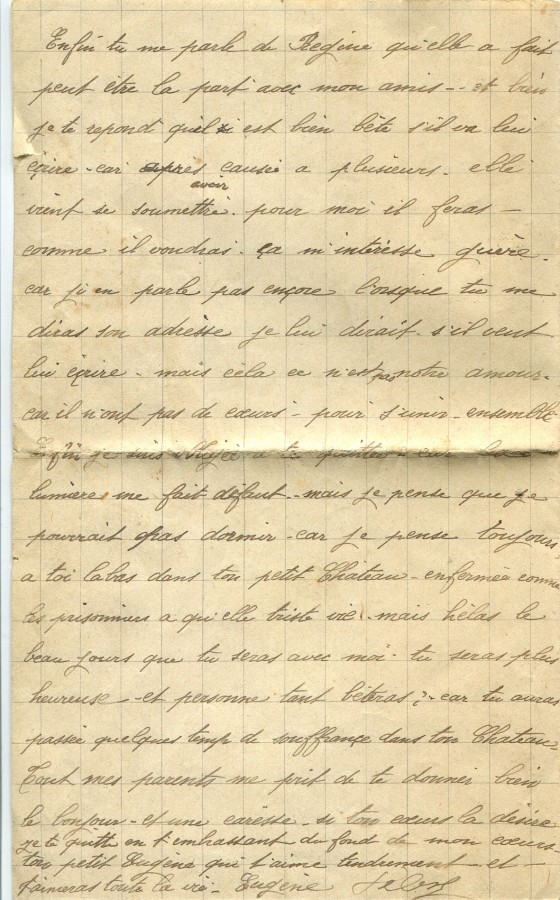 Enfin tu me parle de Regine qu'elle a fait
peut être la part avec mon amis - et bien
je te repond quel est bien bête s'il va lui
écrire - car après avoir causée a plusieurs - elle
vient se soumettre. pour moi il feras -
comme il voudras. ça m'intéresse guère.
car j'i en parle pas encore l'orsque tu me
diras son adrèsse je lui dirait s'il veut
lui écrire - mais cèla ce n'est pas notre amour.
car il n'ont pas de cœurs - pour s'unir - ensemble
Enfin je suis obligée a te quitter - car la
lumière me fait défaut - mais je pense que je
pourrait pas dormir - car je pense toujours
a toi labas dans ton petit Château - enfermée comme
les prisonniers a qu'elle triste vie. mais hèlas le
beau jours que tu seras avec moi - tu seras plus
heureuse - et personne tant bèteras ? - car tu auras
passée quelques temp de souffrançe dans ton Chateau -
Tout mes parents me prit de te donner bien
le bonjour - et une carèsse - si ton cœurs la désire
je te quitte en t'embrassant du fond de mon cœurs
ton petit Eugène qui t'aime tendrement et -
t'aimeras toute la vie - Eugène